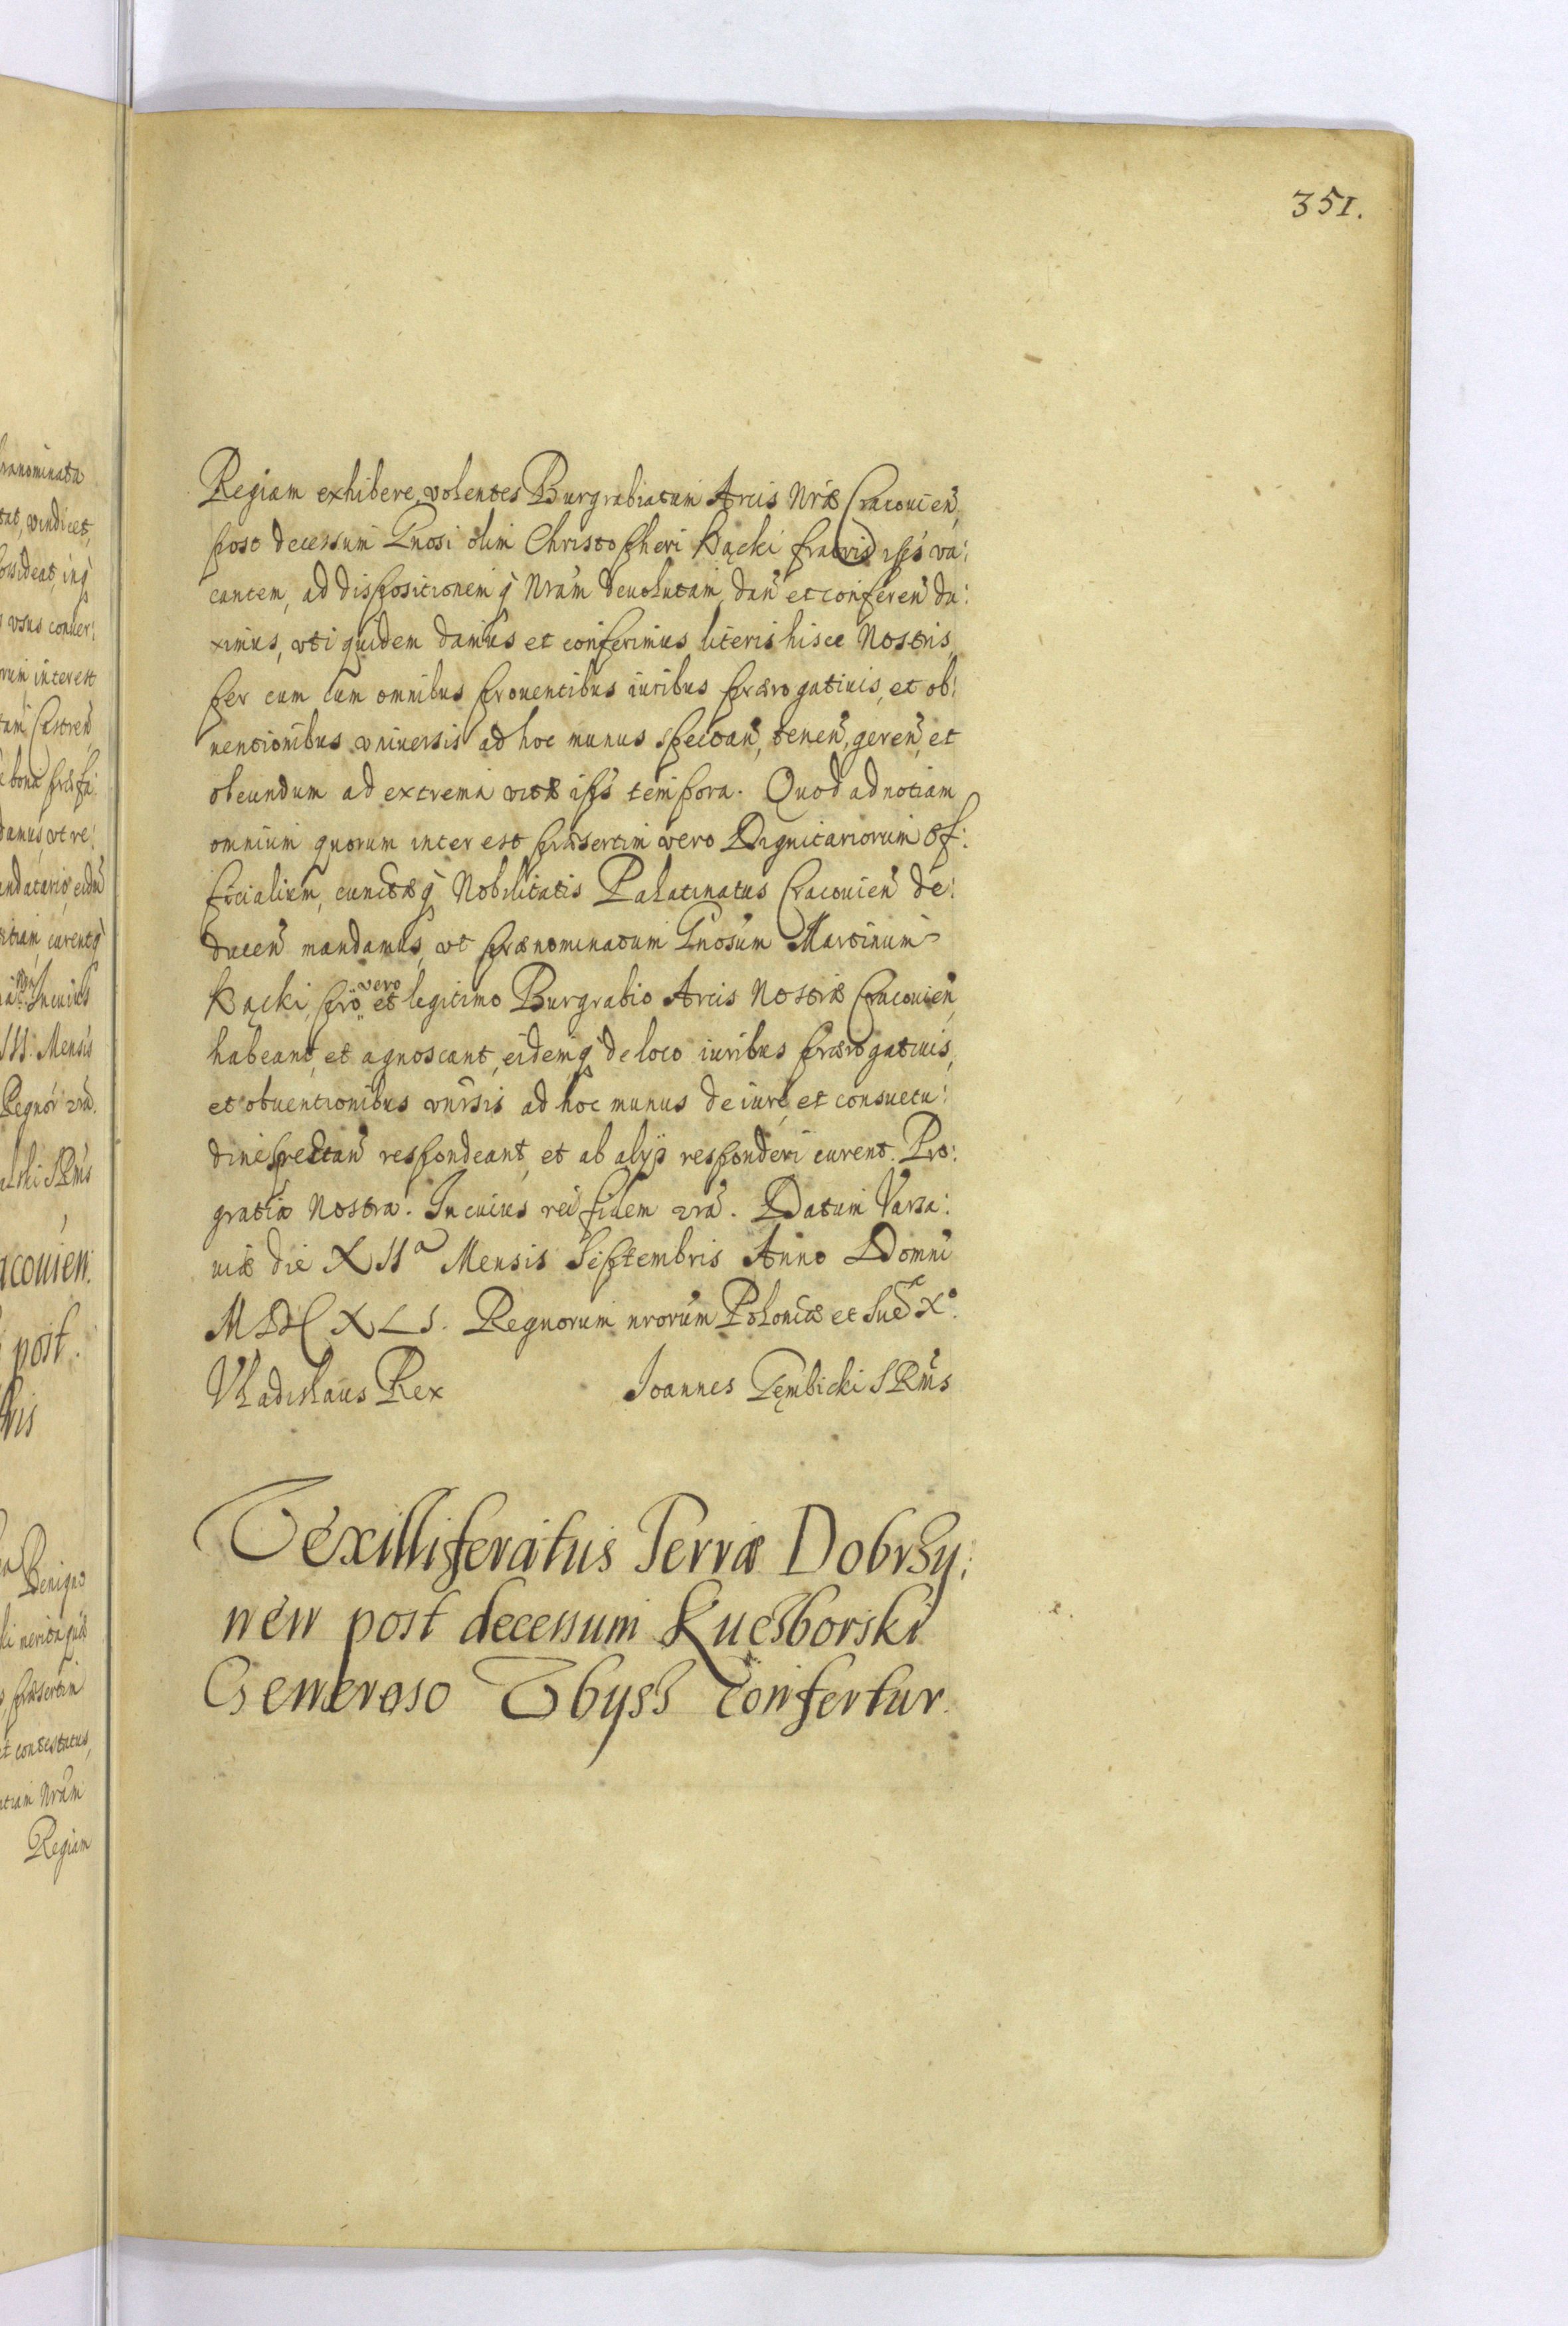 351.
Regiam exhibere volentes Burgrabiatum Arcis Nrae Cracovien̄,
post decessum Gnosi olim Christopheri Bącki fratris ipss va:
cantem, ad dispositionemq̨ Nram devolutam, dan̄ et conferen̄ du:
ximus, uti quidem damus et conferimus literis hisce Nostris,
per eum cum omnibus proventibus iuribus praerogativis, et ob:
ventionibus universis ad hoc munus spectan̄, tenen̄, geren̄, et
obeundum ad extrema vitae ipss tempora. Quod ad notiam
omnium quorum interest praesertim vero Dignitariorum Of:
ficialium, cunctaeq̨ Nobilitatis Palatinatus Cracovien̄ de:
ducen̄ mandamus, ut praenominatum Gnosum Martinum
Bącki, pro vero et legitimo Burgrabio Arcis Nostrae Cracovien̄,
habeant, et agnoscant, eidemq̨ de loco iuribus praerogativis,
et obventionibus unrsis ad hoc munus de iure, et consuetu:
dine spectan̄ respondeant, et ab alijs responderi curent. Pro:
gratia Nostra. In cuius rei fidem 2ra. Datum Varsa:
viae die XIIa Mensis Septembris Anno Domni
MDCXLI. Regnorum nrorum Poloniae et Sue. Xo.
Vladislaus Rex Joannes Gembicki SRMs
Vexilliferatus Terrae Dobrzy:
nen post decessum Kuczborski
Generoso Zbyss confertur.
ranominata
tat, vindicet,
ossideat, inq̨
usus conver:
rum interest
tam Castren̄
bona praefa:
damus, ut re:
andatario, eidm̄
titiam, carentq̨
In cuius
III. Mensis
Regnor 2ra.
alski SRMs
acovien.
post.
Benigno
ki merita
praesertim
et contestatus,
tiam Nram
Regiam